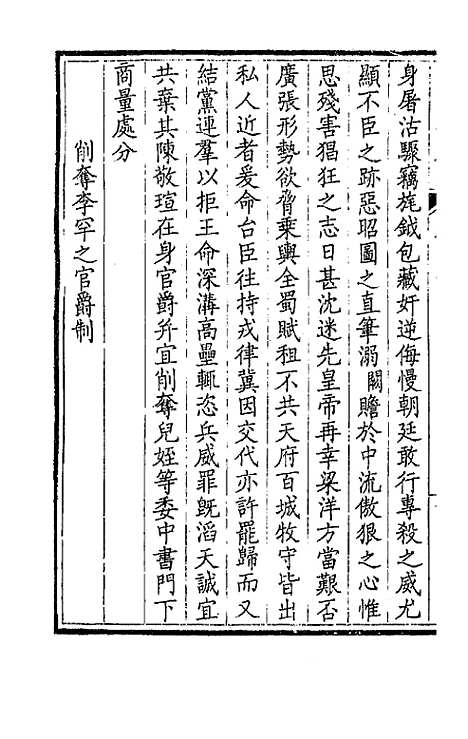 身屠沽驟竊旄鉞包藏奸逆侮慢朝廷敢行專殺之威尤
顯不臣之跡惡昭圖之直筆溺 闕贍於中流傲狠之心惟
思殘害猖狂之志日甚沈迷先皇帝再幸梁洋方當艱否
廣張形勢欲脅乗輿全蜀賦租不共天府百城牧守皆出
私人近者爰命台臣往持戎律冀因交代亦許罷歸而又
結黨連羣以拒王命深溝高壘輒恣兵威罪既滔天誠宜
共棄其陳敬瑄在身官爵并宜削奪兒姪等委中書門下
商量處分
削奪李罕之官爵制